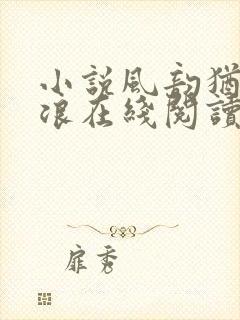 小説風韵猶
浪在綫閱讀
扉秀